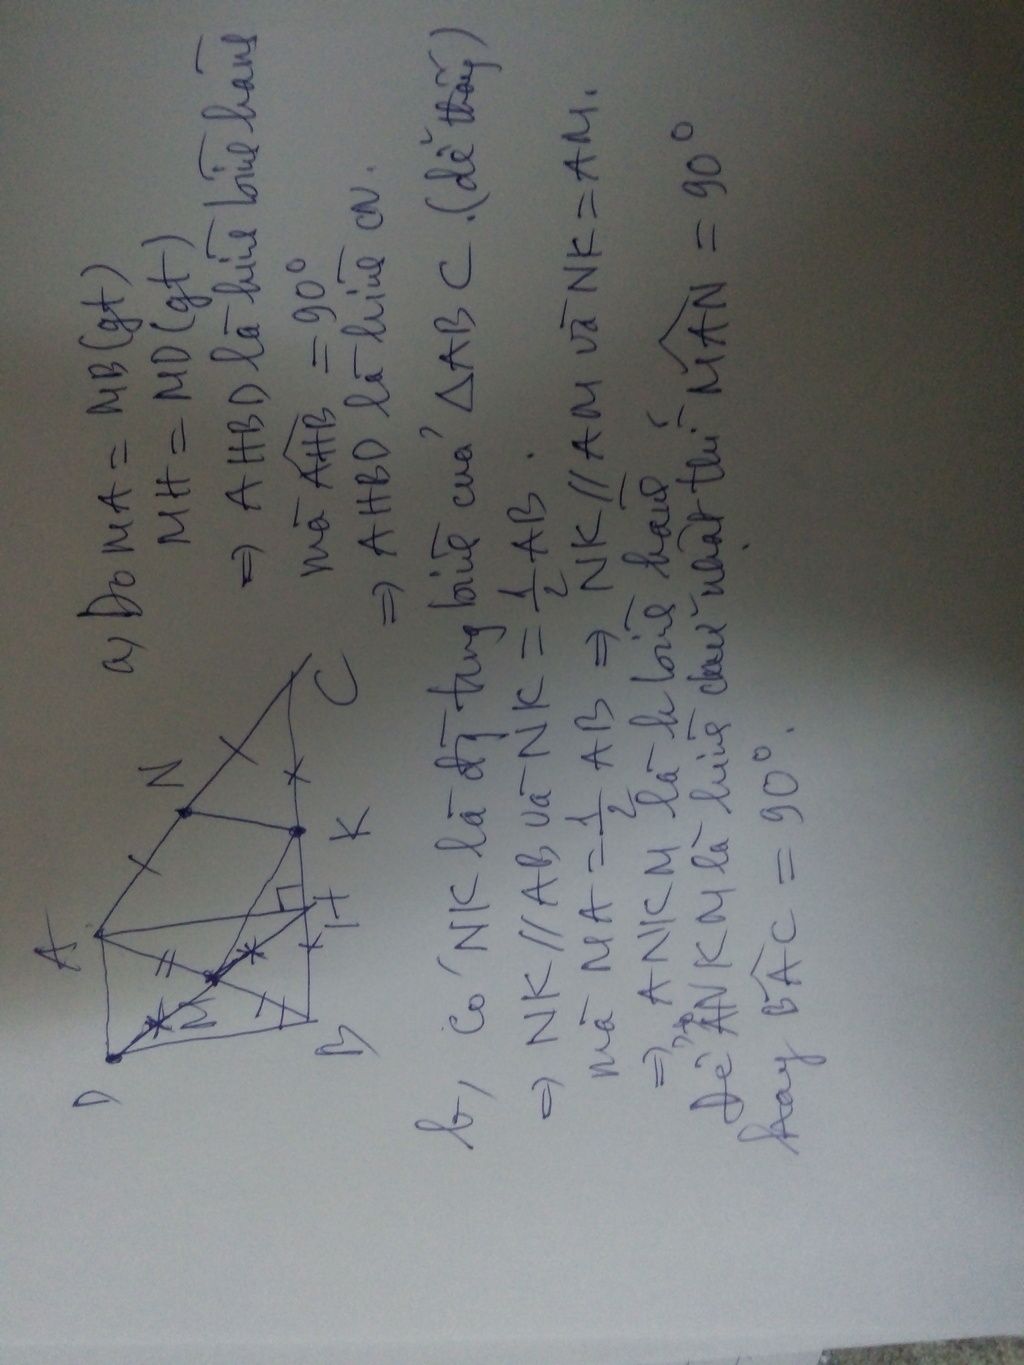 D
A
M
N
B
H
K
C
a) Do MA = MB (gt)
MH = MD (gt)
⇒ AHBD là hình bình hành
mà AHB = 90°
⇒ AHBD là hình CN.
b, Có NK là đg trung bình của ΔABC. (dễ thấy)
⇒ NK // AB và NK = 1/2 AB.
mà MA = 1/2 AB ⇒ NK // AM và NK = AM.
⇒ ANKM là h bình hành
Để ANKM là hình chữ nhật thì MAN = 90°
hay BAC = 90°.